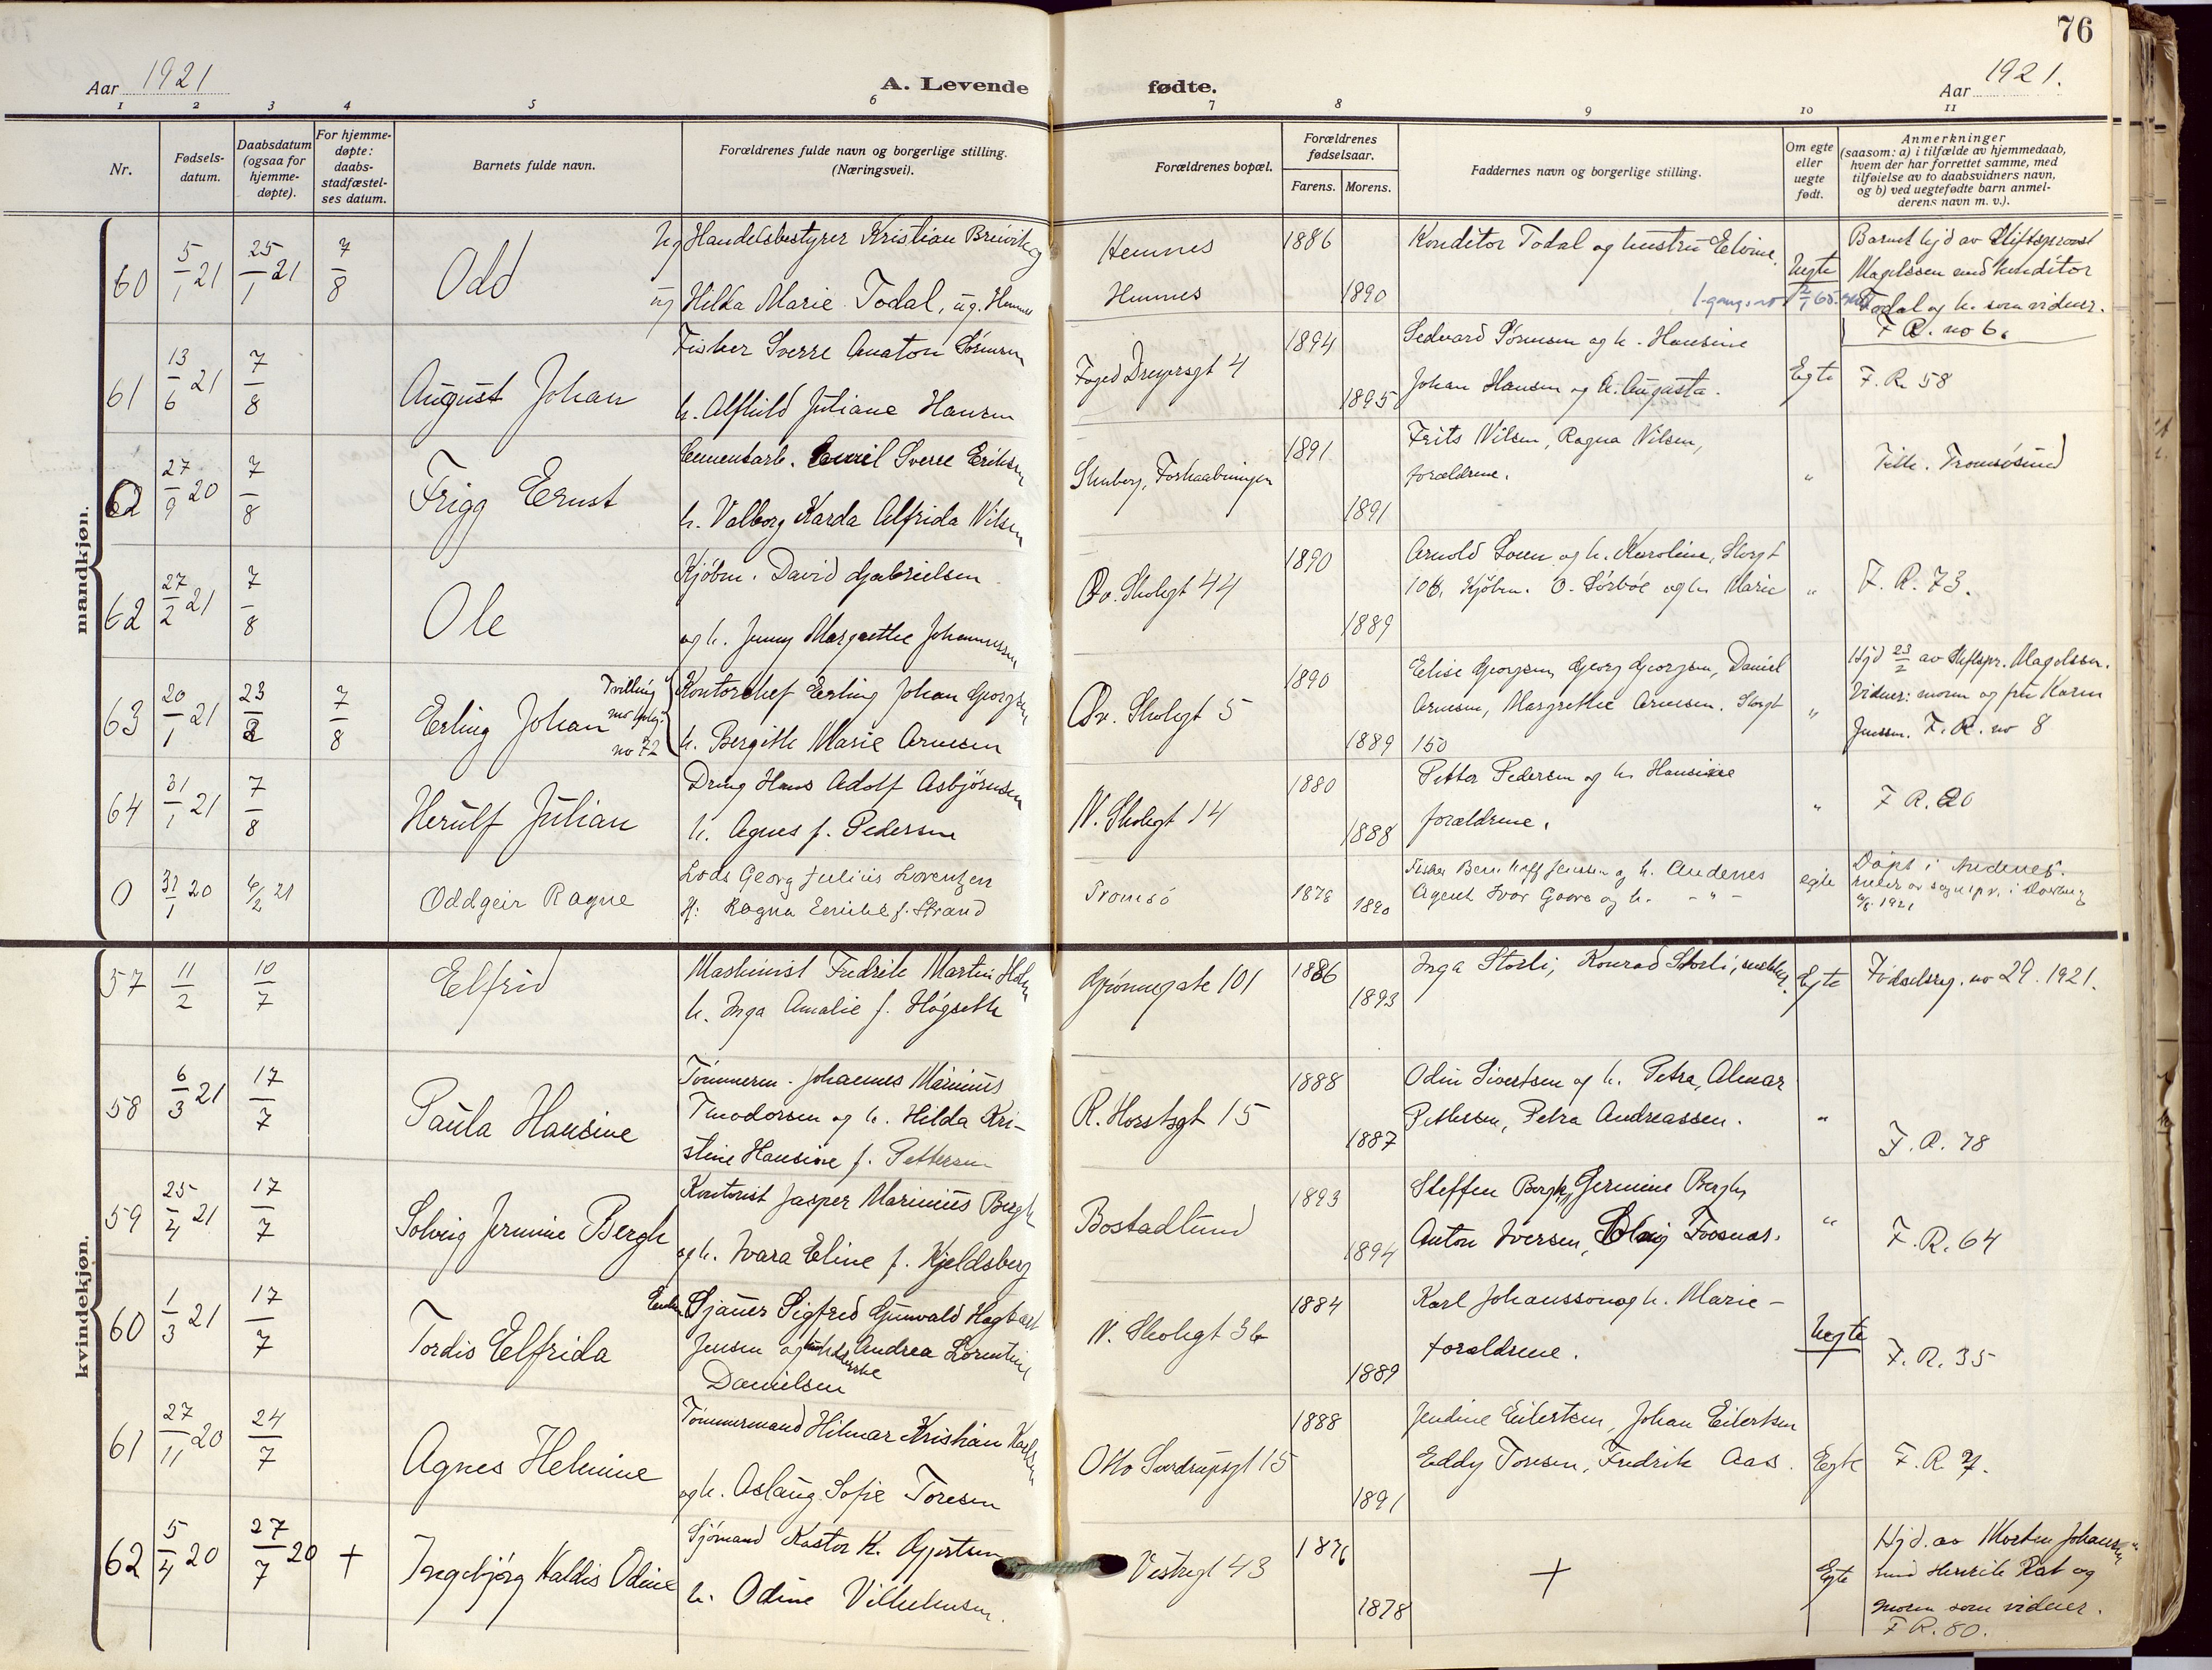 76
Aar 1921
A. Levende
fødte.
Aar 1921.
1 2 3 4 5 6 7 8 9 10 11
Nr.
Fødsels-
datum.
Daabsdatum
(ogsaa for
hjemme-
døpte).
For hjemme-
døpte:
daabs-
stadfæstel-
ses datum.
Barnets fulde navn.
Forældrenes fulde navn og borgerlige stilling.
(Næringsvei).
Forældrenes bopæl.
Forældrenes
fødselsaar.
Farens. Morens.
Faddernes navn og borgerlige stilling.
Om egte
eller
uegte
født.
Anmerkninger
(saasom: a) i tilfælde av hjemmedaab,
hvem der har forrettet samme, med
tilføielse av to daabsvidners navn,
og b) ved uegtefødte barn anmel-
derens navn m. v.).
mandkjøn.
60 5/1 21 25/1 21 7/8 Odd
Ug Handelsbestyrer Kristian Breivik og
ug Hilda Marie Todal, ug. Hemnes
Hemnes
Hemnes
1886 1890
Konditor Todal og hustru Elvine.
Uegte
Barnet hjd av Stiftsprovst
Magelssen med konditor
Todal og h. som vidner.
F R. no 6.
61 13/6 21 7/8 August Johan
Fisker Sverre Anaton Sørensen
h. Alfhild Juliane Hansen
Foged Dreyersgt 4
1894 1895
Sedvard Sørensen og h. Hansine
Johan Hansen og h. Augusta.
Egte
F. R. 58
62 27/9 20 7/8 Frigg Ernst
Cementarb. Emil Sverre Eriksen
h. Valborg Karda Alfrida Nilsen
Stenberg, Forhaabningen
1891 1891
Frits Nilsen, Ragna Nilsen,
forældrene.
"
Tilh. Tromsøsund
62 27/2 21 7/8 Ole
Kjøbm. David Gabrielsen
og h. Jenny Margrethe Johannessen
Øv. Skolegt 44
1890 1889
Arnold Soen og h. Karoline, Storgt
106, Kjøbm. O. Sørbøe og h. Marie
"
F. R. 73.
63 20/1 21 23/2 7/8 Erling Johan
Tvilling
no 72
Kontorchef Erling Johan Georgsen
h. Bergithe Marie Arnesen
Øv. Skolegt 5
1890 1889
Elise Georgsen, Georg Georgsen, Daniel
Arnesen, Margrethe Arnesen. Storgt
150
"
Hjd 23/2 av Stiftspr. Magelssen.
Vidner: moren og frk Karen
Jenssen. F. R. no 8
64 31/1 21 7/8 Herulf Julian
Dreng Hans Adolf Asbjörnsen
h. Agnes f. Pedersen
N. Skolegt 14
1880 1888
Petter Pedersen og h. Hansine
forældrene.
"
F R. 20
0 31/1 20 6/2 21 Oddgeir Ragne
Lods Georg Julius Lorentzen
H: Ragna Emilie f. Strand
Tromsö
1878 1890
Fisker Bernhoff Jenssen og h. Andenes
Agent Ivar Gaare og h. - " -
egte
Døpt i Andenes.
1921
kvindekjøn.
57 11/2 10/7 Elfrid
Maskinist Fredrik Martin Holm
h. Inga Amalie f. Högseth
Grönnegate 101
1886 1893
Inga Storli, Konrad Storli, snekker.
Egte
Födselsreg. no 29. 1921.
58 6/3 21 17/7 Paula Hansine
Tömmerm. Johannes Marinius
Teodorsen og h. Hilda Kri-
stine Hansine f. Pettersen
R. Horstsgt 15
1888 1887
Odin Sivertsen og h. Petra, Almar
Pettersen, Petra Andreassen.
"
F. R. 78
59 25/4 21 17/7 Solveig Jermine Bergh
Kontorist Jasper Marinius Bergh
og h. Ivara Eline f. Kjeldsberg
Bostadlund
1893 1894
Steffen Bergh, Germine Bergh,
Anton Iversen, Solveig Fosnæs.
"
F. R. 64
60 1/3 21 17/7 Tordis Elfrida
Sjauer Sigfred Gunvald Hagbart
Jensen og Andrea Lorentine
Danielsen
N. Skolegt 36
1884 1889
Karl Johansson og h. Marie -
forældrene.
Uegte
F. R. 35
61 27/11 20 24/7 Agnes Helmine
Tömmermand Hilmar Kristian Karlsen
og h. Aslaug Sofie Toresen
Otto Sverdrupsgt 15
1888 1891
Jendine Eilertsen, Johan Eilertsen
Eddy Toresen, Fredrik Aas.
Egte
F. R. 7.
62 5/4 20 27/7 20 + Ingebjörg Haldis Odine
Sjömand Kastor K. Gjertsen
h. Odine Vilhelmsen.
Vestregt 43
1876 1878
+
Egte
Hjd. av Morten Johansen
med Henrik Rat og
moren som vidner.
F R. 80.